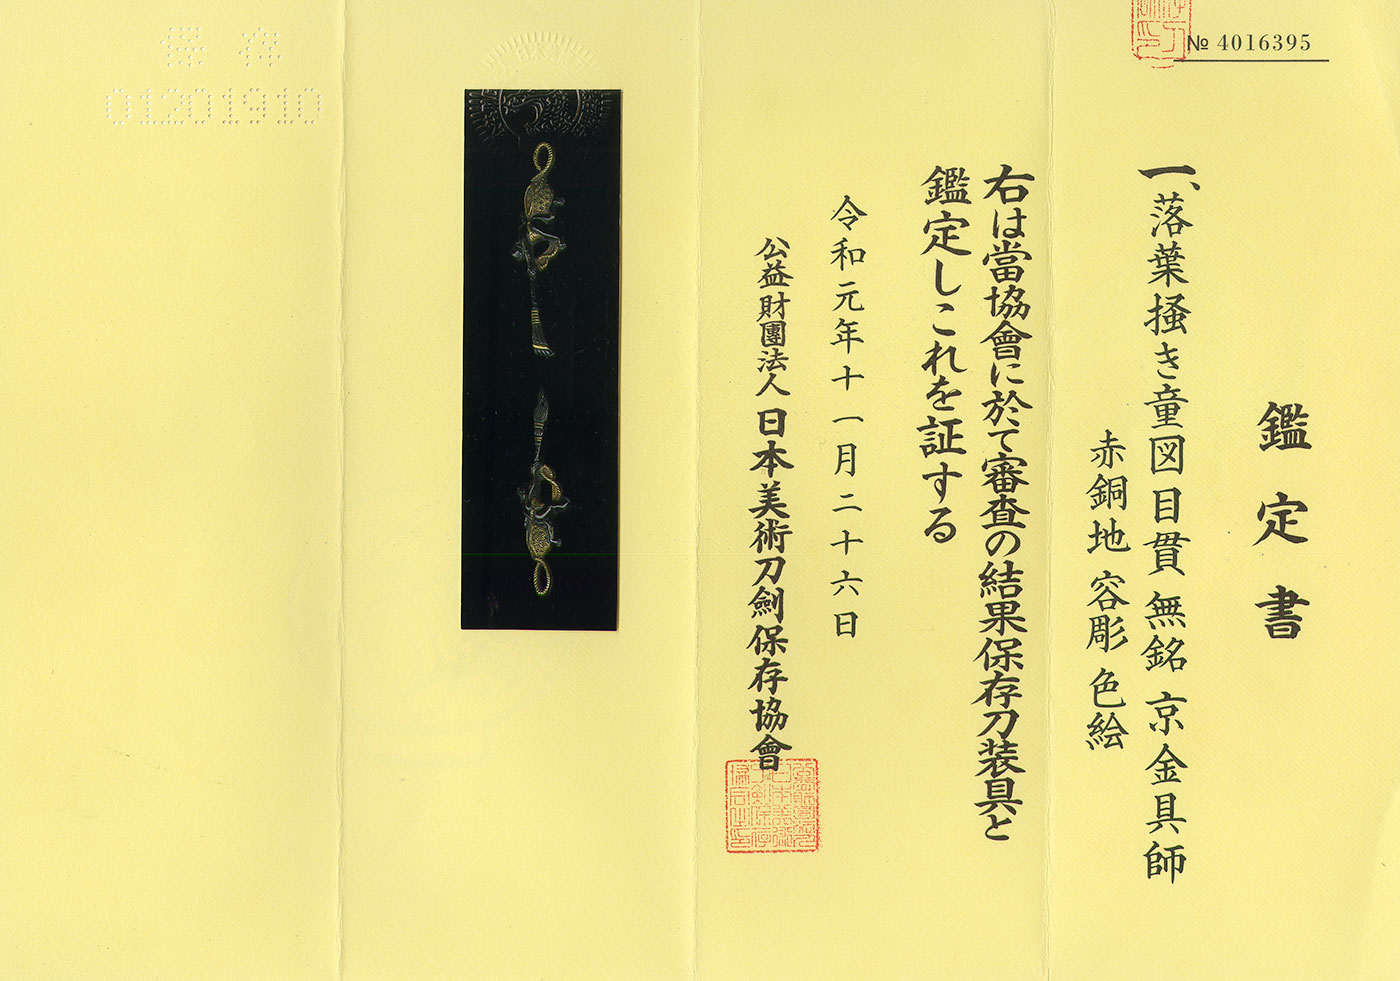 № 4016395
鑑定書
一、落葉掻き童図目貫 無銘 京金具師
赤銅地 容彫 色絵
右は當協會に於て審査の結果保存刀装具と
鑑定しこれを証する
令和元年十一月二十六日
公益財團法人 日本美術刀劍保存協會
保存
01201910